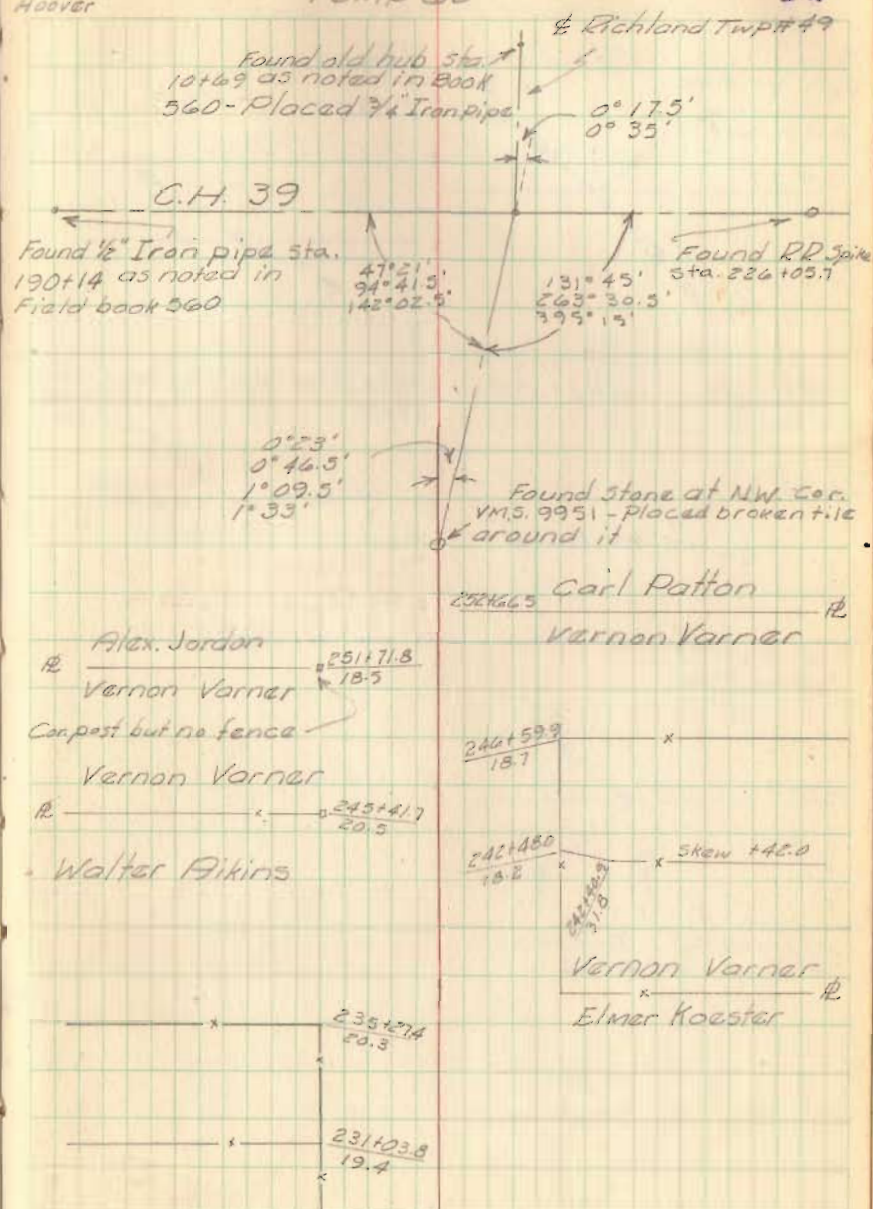 Hoover
℄ Richland Twp #49
Found old hub sta.
10+69 as noted in Book
560 - Placed 3/4" Iron pipe
0° 17.5'
0° 35'
C.H. 39
Found 1/2" Iron pipe sta.
190+14 as noted in
Field book 560
47° 21'
94° 41.5'
142° 02.5'
131° 45'
263° 30.5'
395° 15'
Found RR Spike
sta. 226+05.7
0° 23'
0° 46.5'
1° 09.5'
1° 33'
Found Stone at N.W. Cor.
V.M.S. 9951 - Placed broken tile
around it
252+66.5 Carl Patton
PL
Vernon Varner
Alex. Jordan
PL 251+71.8
18.5
Vernon Varner
Cor. post but no fence
246+59.9
18.7
Vernon Varner
PL 245+41.7
20.5
Walter Aikins
242+48.0
18.2
Skew +42.0
31.8
Vernon Varner
PL
Elmer Koester
235+27.4
20.3
231+03.8
19.4